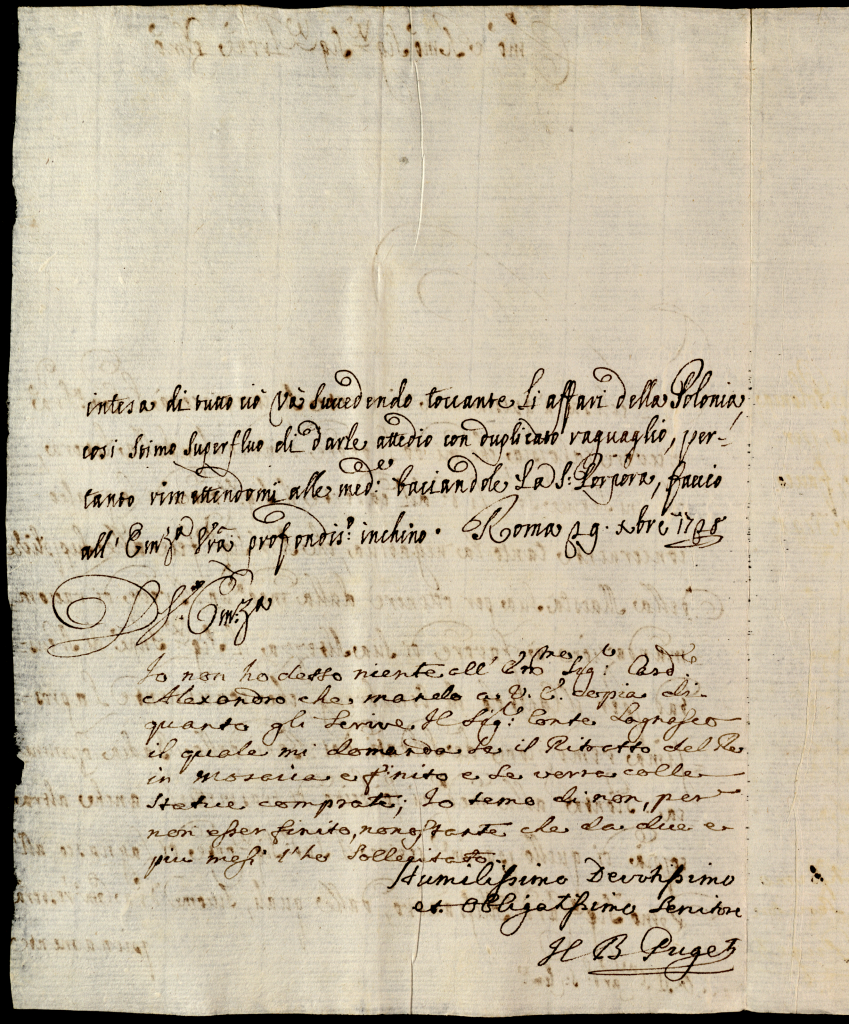 intesa di tutto ciò và succedendo toccante li affari della Polonia,
così stimo superfluo di darle attedio con duplicato raguaglio, per-
tanto rimettendomi alle med.e baciandole la S: Porpora, faccio
all' Em:za Vrã profondis:o inchino. Roma 29. xbre 1728
D. V. Em:za
Io non ho desso niente all' Em:mo Sig.r Card.le
Alexandro che mando a V. E. copia di
quanto gli scrive Il Sig.r Conte Lagnasco
il quale mi domanda se il Ritratto del Re
in Mosaica e finito e se verra colle
statue comprate; Io temo di non, per
non esser finito, nonostante che da due e
piu mesi l'ho sollecitato.
Humilissimo Devotissimo
et Obligatissimo Servitore
Il B Puget